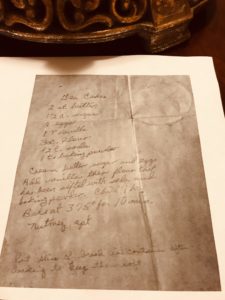 Tea Cakes
2 st butter
1 2 c. sugar
2 eggs
1 t vanilla
3 c. flour
1/2 t. soda
1 t baking powder
Cream butter sugar and eggs
Add vanilla then flour that
has been sifted with soda and
baking powder. Chill 1 h
Bake at 375° for 10 min.
nutmeg opt
Put slice of bread in container